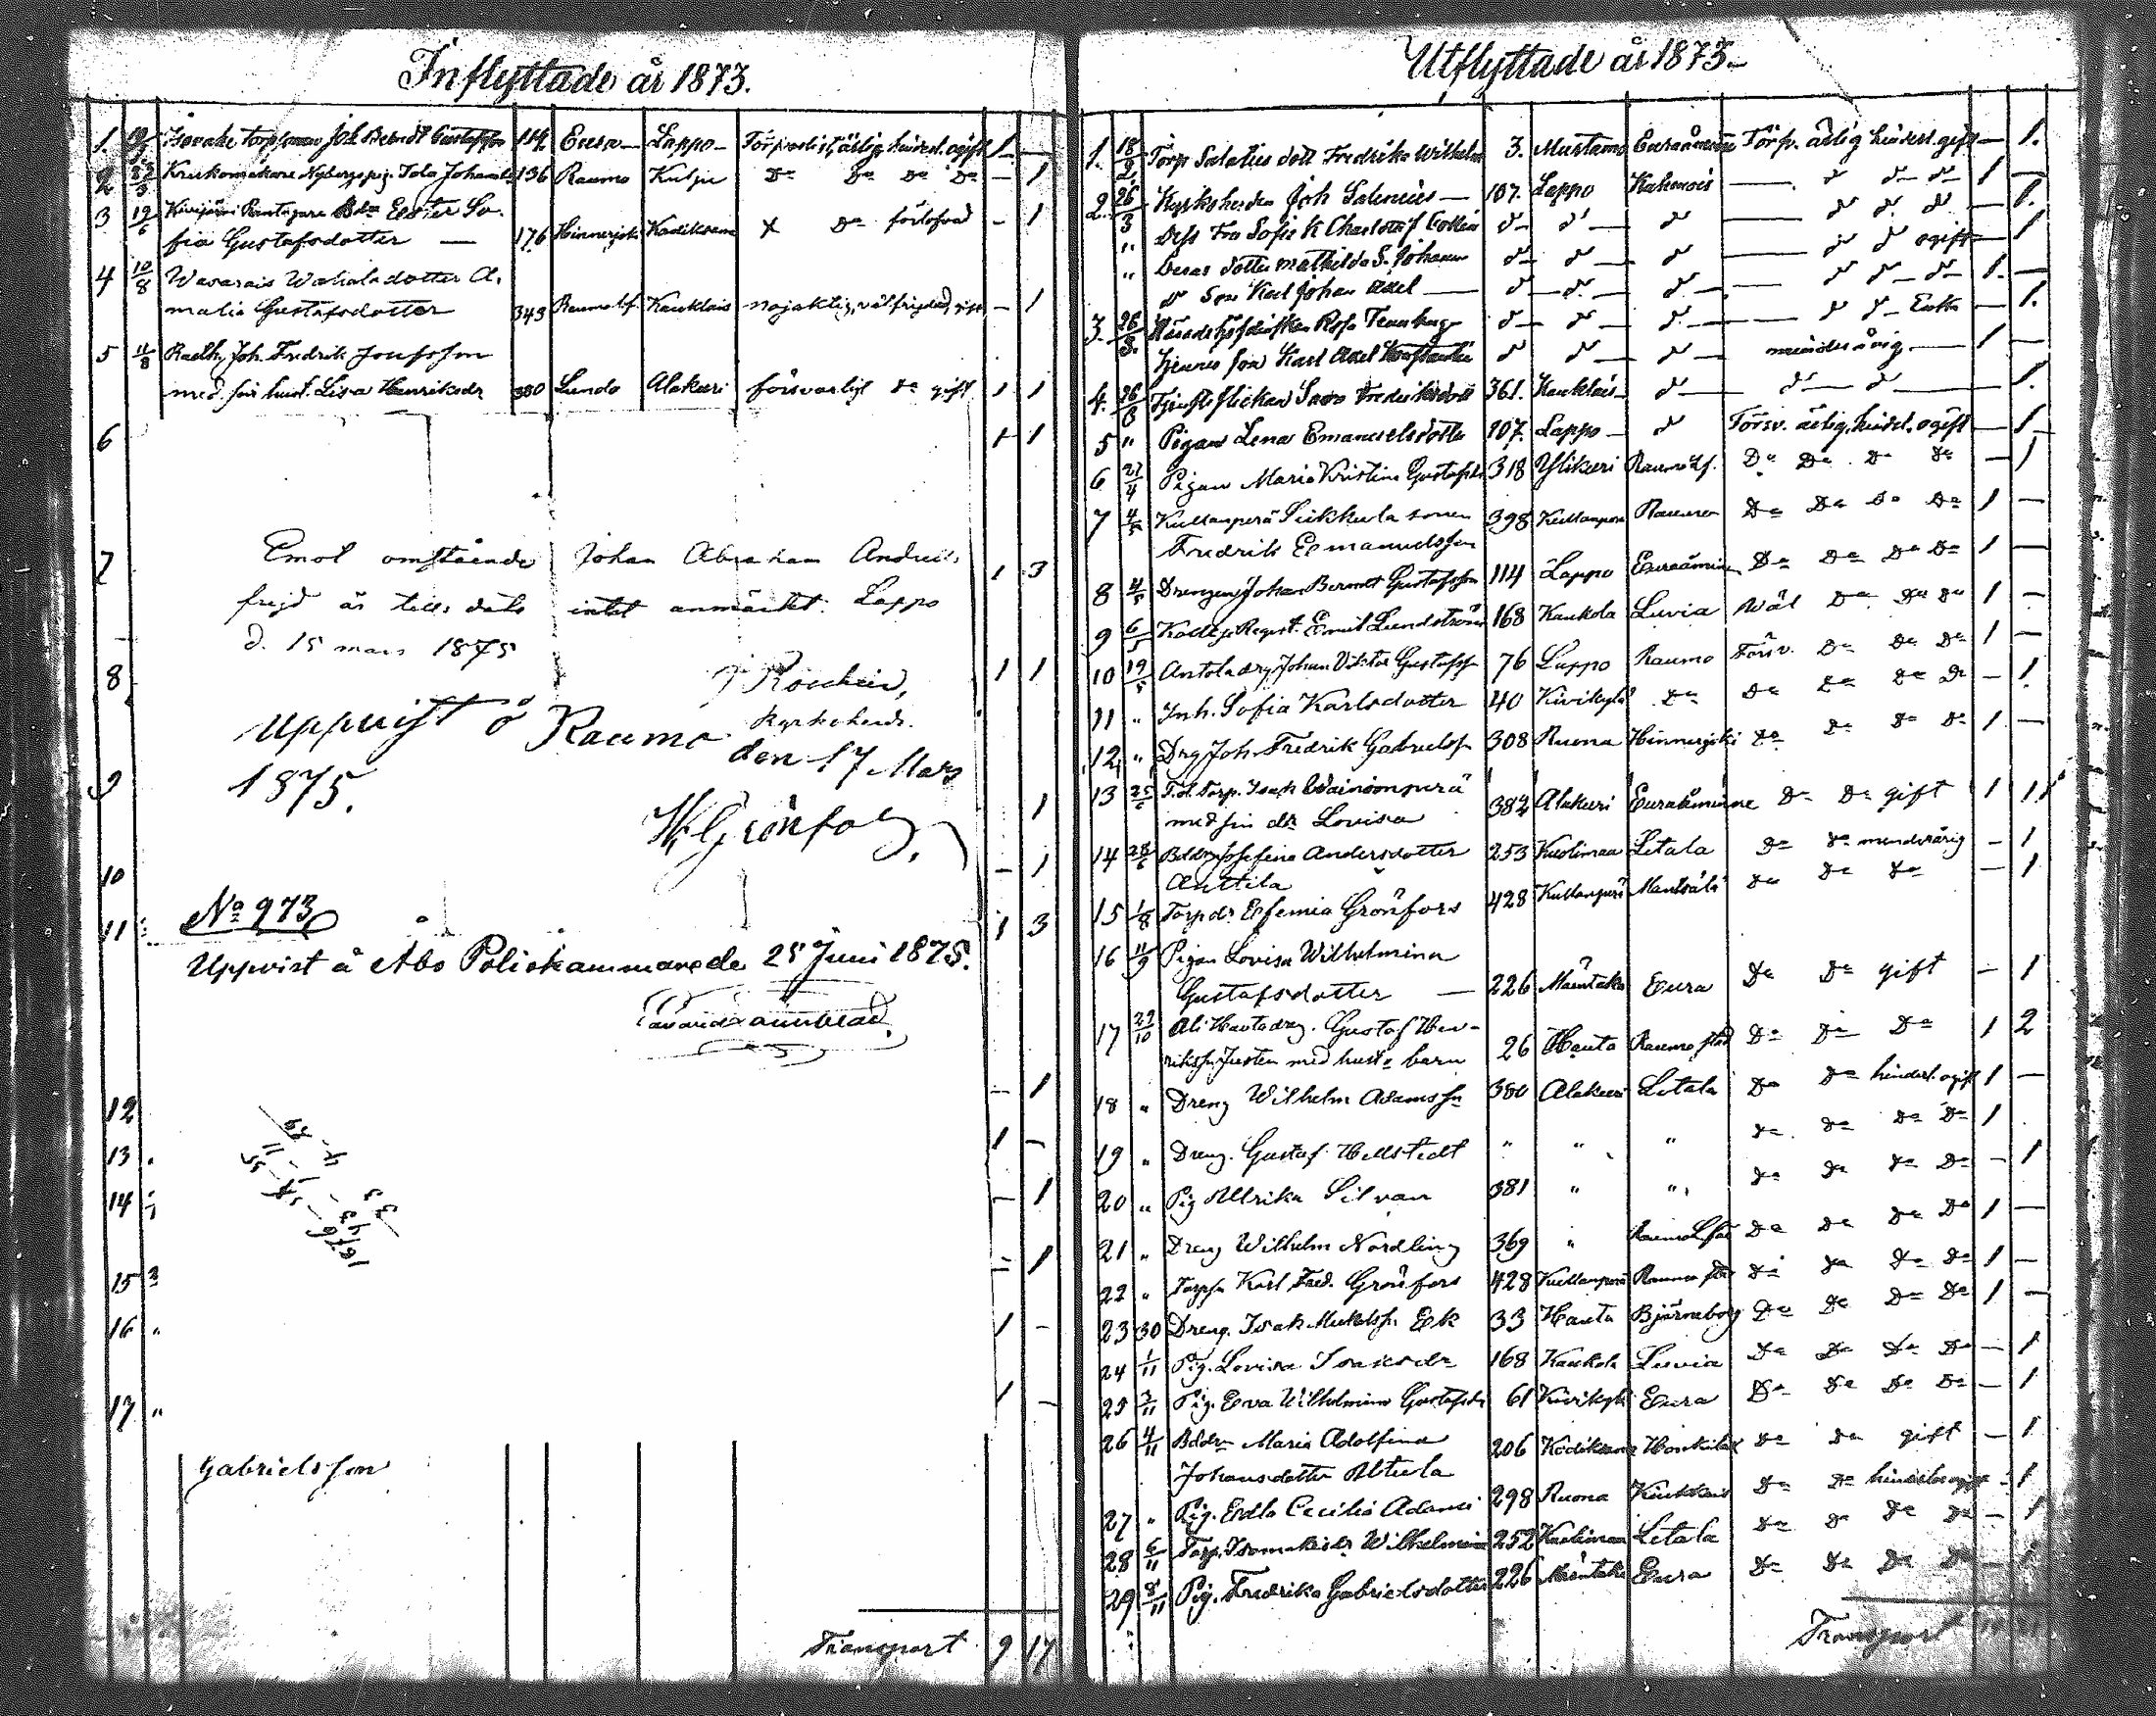 Inflyttade år 1873.
1. torpson Joh Berndt Gustafsson 114 Eura Lappo ärlig hind. ogift 1 —
2 Krukomakare Nybergs pig. Johansdr 136 Raumo Kulju Do Do Do Do — 1
3 19/6 Bdr Ester So-
fia Gustafsdotter — 176 Hinnerjoki Kodiksami X Do förlofvad — 1
4 10/8 Wasarais Wahala dotter A-
malia Gustafsdotter 343 Raumo lf. Kauklais nöjaktig, välfrejdad, — 1
5 11/8 Joh. Fredrik Josefsson
med sin hust. Lisa Henriksdr 380 Lundo Alakeri försvarligt Do gift 1 1
6 1 1
7 Emot omstående Johan Abraham Anders 1 3
frejd är till dato intet anmärkt. Lappo
d. 15 mars 1875
8 1 1
Kyrkoherde.
Uppvist å Raumo den 17 Mars
9 1875. 1
H. Grönfors
10 — 1
No 973
11 1 3
Uppvist å Åbo Poliskammare de 25 Juni 1875.
12 — 1
13 1 —
14 — 1
15 — 1
16 1 —
17 1 —
Gabrielsson
Transport 9 17
Utflyttade år 1873.
1. 18/2 Torp Salelius dott Fredrika Wilhelm 3. Mustamo Euraåminne Förp. ärlig hinderl. gift — 1.
2. 26/3 Kyrkoherden Joh Salenius — 107. Lappo — d d d 1 —
" Dess Fru Sofie K Charlotta f Collin d d d — d d d — 1.
" Deras dotter Mathilda S. Johanna d d d — d d ogift — 1
d Son Karl Johan Axel — d d d — d d d 1. —
3. 26/3. Rosa d d d — d d Enka — 1.
hennes son Karl Axel d d d minderårig 1 —
4. 26/3 Tjensteflickan Sara Fredriksdott 361. Kauklais d d d — 1.
5 " Pigan Lena Emanuelsdotter 107. Lappo d Försv. ärlig, hinderl. ogift — 1
6 27/4 Pigan Maria Kristina Gustafsdr 318 Ylikeri Raumo lf. Do Do Do Do — 1
7 4/5 Kullanperä Sukkula sonen 398 Kullanperä Raumo Do Do Do Do 1 —
Fredrik Emanuelsson
8 4/5 Drengen Johan Berndt Gustafsson 114 Lappo Euraåminne Do Do Do Do 1 —
9 6/5 Kollegi Regist. Emil Lundström 168 Kaukola Luvia Wäl Do Do Do 1 —
10 19/5 Antola drg Johan Viktor Gustafsson 76 Lappo Raumo Försv. Do Do Do 1 —
11 " Inh. Sofia Karlsdotter 40 Kivikylä Do Do Do Do Do — 1.
12 " Drg Joh. Fredrik Gabrielsson 308 Ruona Hinnerjoki Do Do Do Do 1 —
13 25/5 Torp. Isak Wainionperä
med sin dr Lovisa 382 Alakeri Euraåminne Do Do gift 1 1
14 28/6 Josefina Andersdotter 253 Kuolimaa Letala Do Do minderårig — 1
Anttila
15 1/8 Torp dr Eufemia Grönfors 428 Kullanperä Mäntsälä Do Do Do — 1
16 11/9 Pigan Lovisa Wilhelmina
Gustafsdotter — 226 Mäntaka Eura Do Do gift — 1
17 29/10 Ali Hauta drg. Gustaf Hen-
rikson Justen med hust o barn 26 Hauta Raumo stad Do Do Do 1 2
18 " Dreng Wilhelm Adamsson 380 Alakeri Letala Do Do hinderl. ogift 1 —
19 " Dreng. Gustaf Hellstedt " " " Do Do Do Do 1
20 " Pig Ulrika Silvan 381 " " Do Do Do Do — 1
21 " Dreng Wilhelm Nordling 369 " Do Do Do Do 1 —
22 " Torps. Karl Fred. Grönfors 428 Kullanperä Raumo stad Do Do Do Do 1 —
23 30 Dreng. Isak Mickelsson Ek 33 Hauta Björneborg Do Do Do Do 1 —
24 1/11 Pig. Lovisa Isaksdr 168 Kaukola Luvia Do Do Do Do — 1
25 3/11 Pig. Eva Wilhelmina Gustafsdr 61 Kivikylä Eura Do Do Do Do — 1
26 4/11 Maria Adolfina 206 Kodiksami Honkilax Do Do gift — 1
Johansdotter
27 " Pig. Edla Cecilia Adami 298 Ruona Kiukkais Do Do hinderlös ogift — 1
28 6/11 Wilhelmina 252 Kuolimaa Letala Do Do Do Do — 1
29 8/11 Pig. Fredrika Gabrielsdotter 226 Mäntaka Eura Do Do Do Do — 1
Transport